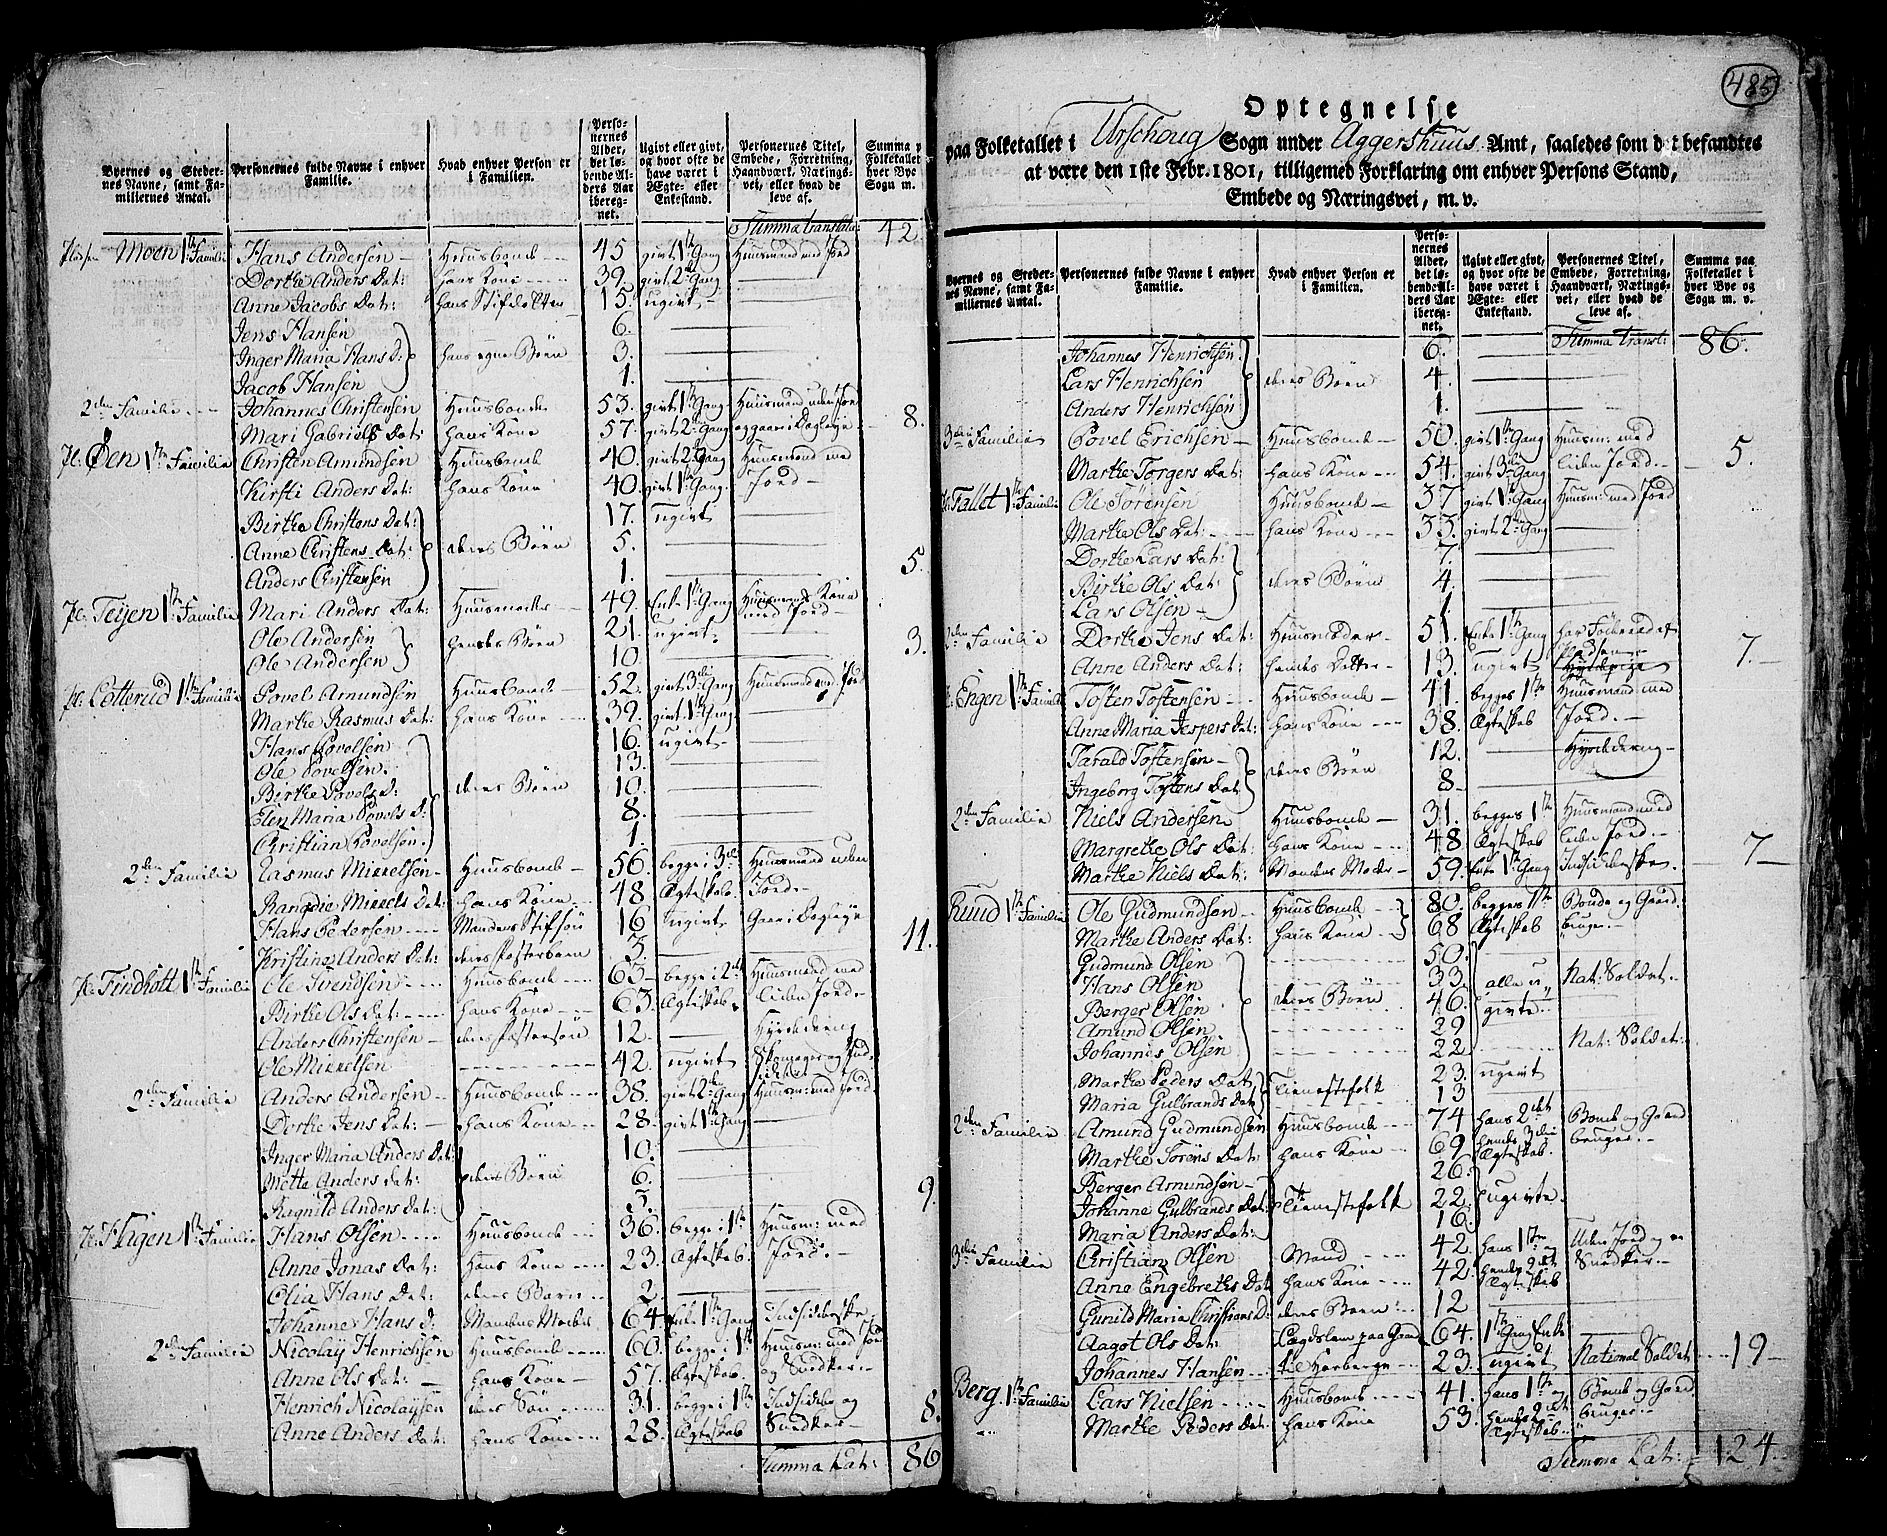 Byernes og Stedernes Navne, samt Familiernes Antal.
Personernes fulde Navne i enhver Familie.
Hvad enhver Person er i Familien.
Personernes Alder, det løbende Alders Aar iberegnet.
Ugivt eller givt, og hvor ofte de have været i Ægte- eller Enkestand.
Personernes Titel, Embede, Forretning, Haandværk, Næringsvei, eller hvad de leve af.
Summa paa Folketallet i hver Bye og Sogn m. v.
Summa transl: 42
Moen 1ste Familie Hans Andersen Huusbonde 45 givt 1te Gang Huusmand med Jord
Dorthe Anders Dat: hans Kone 39 givt 2den Gang
Anne Jacobs Dat: hans Stifdatter 15 ugivt
Jens Hansen 6.
Inger Maria Hans D: hans egne Børn 3.
Jacob Hansen 1.
2den Familie Johannes Christensen Huusbonde 53. givt 1te Gang Huusmand uden Jord
Mari Gabriels Dat: hans Kone 57. givt 2den Gang og gaar i Dagleye 8.
Pl: Øen 1ste Familie Christen Amundsen Huusbonde 40. givt 2den Gang Huusmand med
Kirsti Anders Dat: hans Kone 40. givt 1te Gang Jord
Birthe Christens Dat: 17. ugivt
Anne Christens Dat: deres Børn 5.
Anders Christensen 1. 5.
Pl: Teijen 1ste Familie Mari Anders Dat: Huusmoder 49. Enke 1te Gang Huusmands Kone med Jord
Ole Andersen 21. ugivt
Ole Andersen hendes Børn 10 3.
Pl: Lotterud 1ste Familie Povel Amundsen Huusbonde 52. givt 3die Gang Huusmand med Jord
Marthe Rasmus Dat: hans Kone 39. givt 1te Gang
Hans Povelsen 16. ugivt
Ole Povelsen. 13.
Birthe Povels D: deres Børn 10.
Elen Maria Povels D: 8.
Christian Povelsen. 1.
2den Familie Rasmus Mikkelsen Huusbonde 56. begge i 3die Huusmand uden
Rangdie Mikkels Dat: hans Kone 48 Ægteskab. Jord.
Hans Pedersen Mandens Stifsøn 16 ugivt Gaar i Dagleye
Kristine Anders Dat: deres Fosterbarn 5. 11.
Pl: Findholt 1ste Familie Ole Svendsen Huusbonde 63 begge i 2det Huusmand med
Birthe Ols Dat: hans Kone 63. Ægteskab. liden Jord.
Anders Christensen deres Fostersøn 12. Hyrdedreng
Ole Mikkelsen 42 ugivt Skomager og Indsidder
2den Familie Anders Andersen Huusbonde 38. givt 2den Gang Huusm: med Jord
Dorthe Jens Dat: hans Kone 28. givt 1te Gang
Inger Maria Anders Dat: 10.
Mette Anders Dat: deres Børn 6.
Ragnild Anders Dat: 5. 9.
Pl: Hagen 1ste Familie Hans Olsen Huusbonde 36. begge i 1te Huusm: med
Anne Jonas Dat: hans Kone 23. Ægteskab. Jord.
Olia Hans Dat: deres Barn 2.
Johanne Hans D: Mandens Moder 64. Enke 1te Gang Indsidderske
2den Familie Nicolay Henrichsen Huusbonde 60. begge i 1te Huusm: med Jord
Anne Ols Dat: hans Kone 57. Ægteskab og Snedker
Henrich Nicolaysen deres Søn 31. begge i 1te Indsidder og
Anne Anders Dat: hans Kone 28. Ægteskab Snedker 8.
Summa Lat: 86
485
Optegnelse
paa Folketallet i Urschoug Sogn under Aggershuus Amt, saaledes som det befandtes
at være den 1ste Febr. 1801, tilligemed Forklaring om enhver Persons Stand,
Embede og Næringsvei, m. v.
Byernes og Stedernes Navne, samt Familiernes Antal.
Personernes fulde Navne i enhver Familie.
Hvad enhver Person er i Familien.
Personernes Alder, det løbende Alders Aar iberegnet.
Ugivt eller givt, og hvor ofte de have været i Ægte- eller Enkestand.
Personernes Titel, Embede, Forretning, Haandværk, Næringsvei, eller hvad de leve af.
Summa paa Folketallet i hver Bye og Sogn m. v.
Summa transl: 86.
Johannes Henrichsen 6.
Lars Henrichsen deres Børn 4.
Anders Henrichsen 1.
3die Familie Povel Erichsen Huusbonde 50. givt 1te Gang Huusm: med
Marthe Torgers Dat: hans Kone 54. givt 3die Gang liden Jord. 5.
Pl: Fallet 1ste Familie Ole Sørensen Huusbonde 37 givt 1te Gang Huusm: med Jord
Marthe Ols Dat: hans Kone 33. givt 2den Gang
Dorthe Lars Dat: 7.
Birthe Ols Dat: deres Børn 4.
Lars Olsen 1
2den Familie Dorthe Jens Dat: Huusmoder 51. Enke 1te Gang har Føderaad af Pladsen
Anne Anders Dat: hendes Datter 13. ugivt Hyrdepige 7.
Pl: Engen 1ste Familie Tosten Tostensen Huusbonde 41. begges 1te Huusmand med
Anne Maria Jespers Dat: hans Kone 38. Ægteskab Jord.
Tarald Tostensen 12. Hyrdedreng
Ingeborg Tostens Dat: deres Børn 8
2den Familie Niels Andersen Huusbonde 31. begges 1te Huusmand med
Margrethe Ols Dat: hans Kone 48. Ægteskab liden Jord.
Marthe Niels Dat: Mandens Moder 59. Enke 1te Gang Indsidderske 7
Ruud 1ste Familie Ole Gudmundsen Huusbonde 80. begges 1te Bonde og Gaard
Marthe Anders Dat: hans Kone 68 Ægteskab bruger.
Gudmund Olsen 50.
Hans Olsen 33. alle u- Nat: Soldat.
Berger Olsen deres Børn 46. givte
Amund Olsen 29
Johannes Olsen 22 Nat: Soldat:
Marthe Peders Dat: 23. ugivt
Maria Gulbrands Dat: Tienestefolk 13
2den Familie Amund Gudmundsen Huusbonde 74 hans 2det Bonde og Gaard
Marthe Sørens Dat: hans Kone 69 hendes 3die Ægteskab. bruger.
Berger Amundsen 26.
Johanne Gulbrands Dat: Tienestefolk 22. ugivte
Maria Anders Dat: 16.
3die Familie Christian Olsen Mand 42. hans 1te Uden Jord og er
Anne Engebreths Dat: hans Kone 42. hendes 2det Ægteskab Snedker.
Gunild Maria Christians D: deres Barn 12
Aagot Ols Dat: Lægdslem paa Gaard 64. 1te Gang Enke
Johannes Hansen til Herberge 23. ugivt National Soldat 19
Berg 1ste Familie Lars Nielsen Huusbonde 41. hans 1te og Bonde og Gaard
Marthe Peders Dat: hans Kone 53. hendes 2det Ægteskab bruger.
Summa Lat: 124.